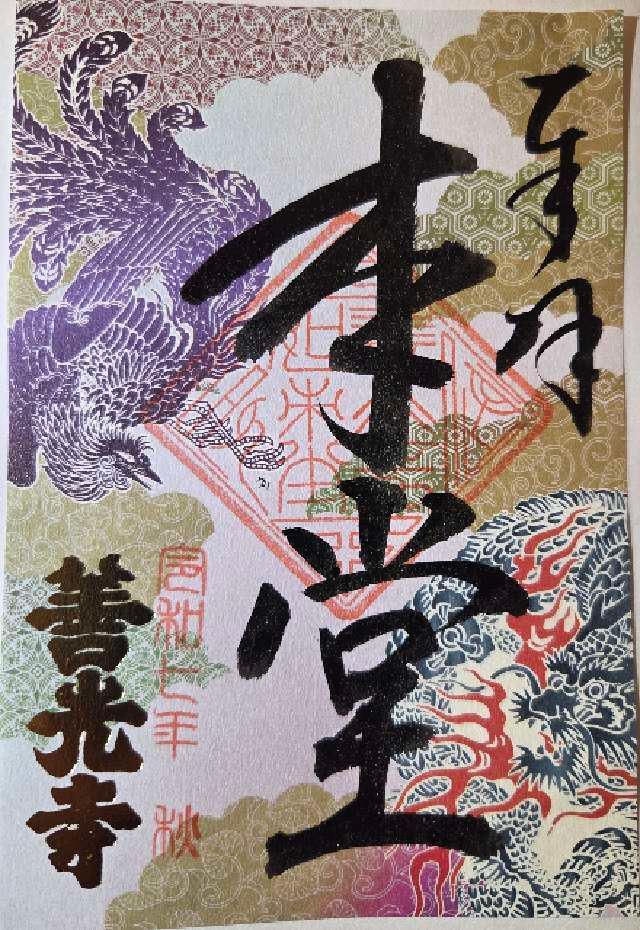 奉拝
本堂
令和七年 秋
善光寺